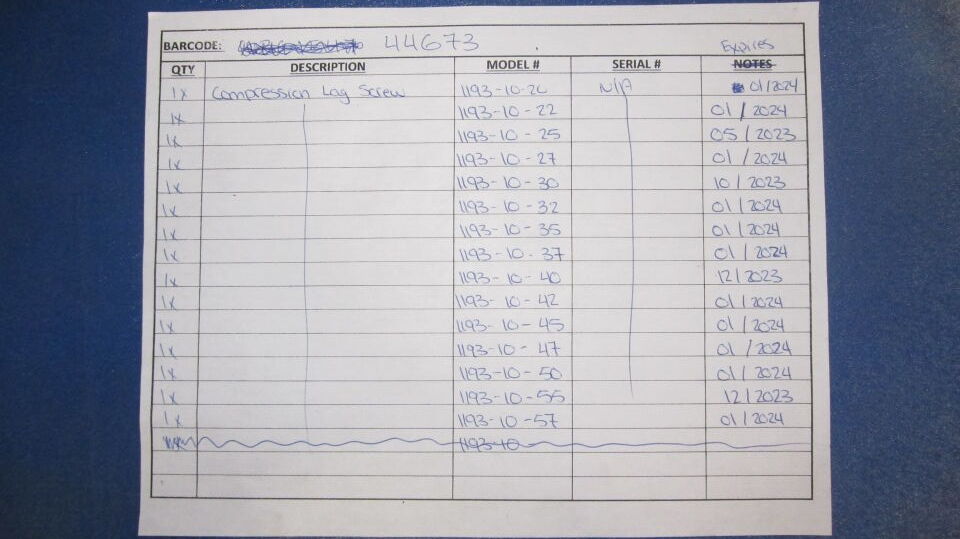 BARCODE: 44673
Expires
QTY DESCRIPTION MODEL # SERIAL # NOTES
1x Compression Lag Screw 1193-10-20 N/A 01/2024
1x 1193-10-22 01/2024
1x 1193-10-25 05/2023
1x 1193-10-27 01/2024
1x 1193-10-30 10/2023
1x 1193-10-32 01/2024
1x 1193-10-35 01/2024
1x 1193-10-37 01/2024
1x 1193-10-40 12/2023
1x 1193-10-42 01/2024
1x 1193-10-45 01/2024
1x 1193-10-47 01/2024
1x 1193-10-50 01/2024
1x 1193-10-55 12/2023
1x 1193-10-57 01/2024
1193-10